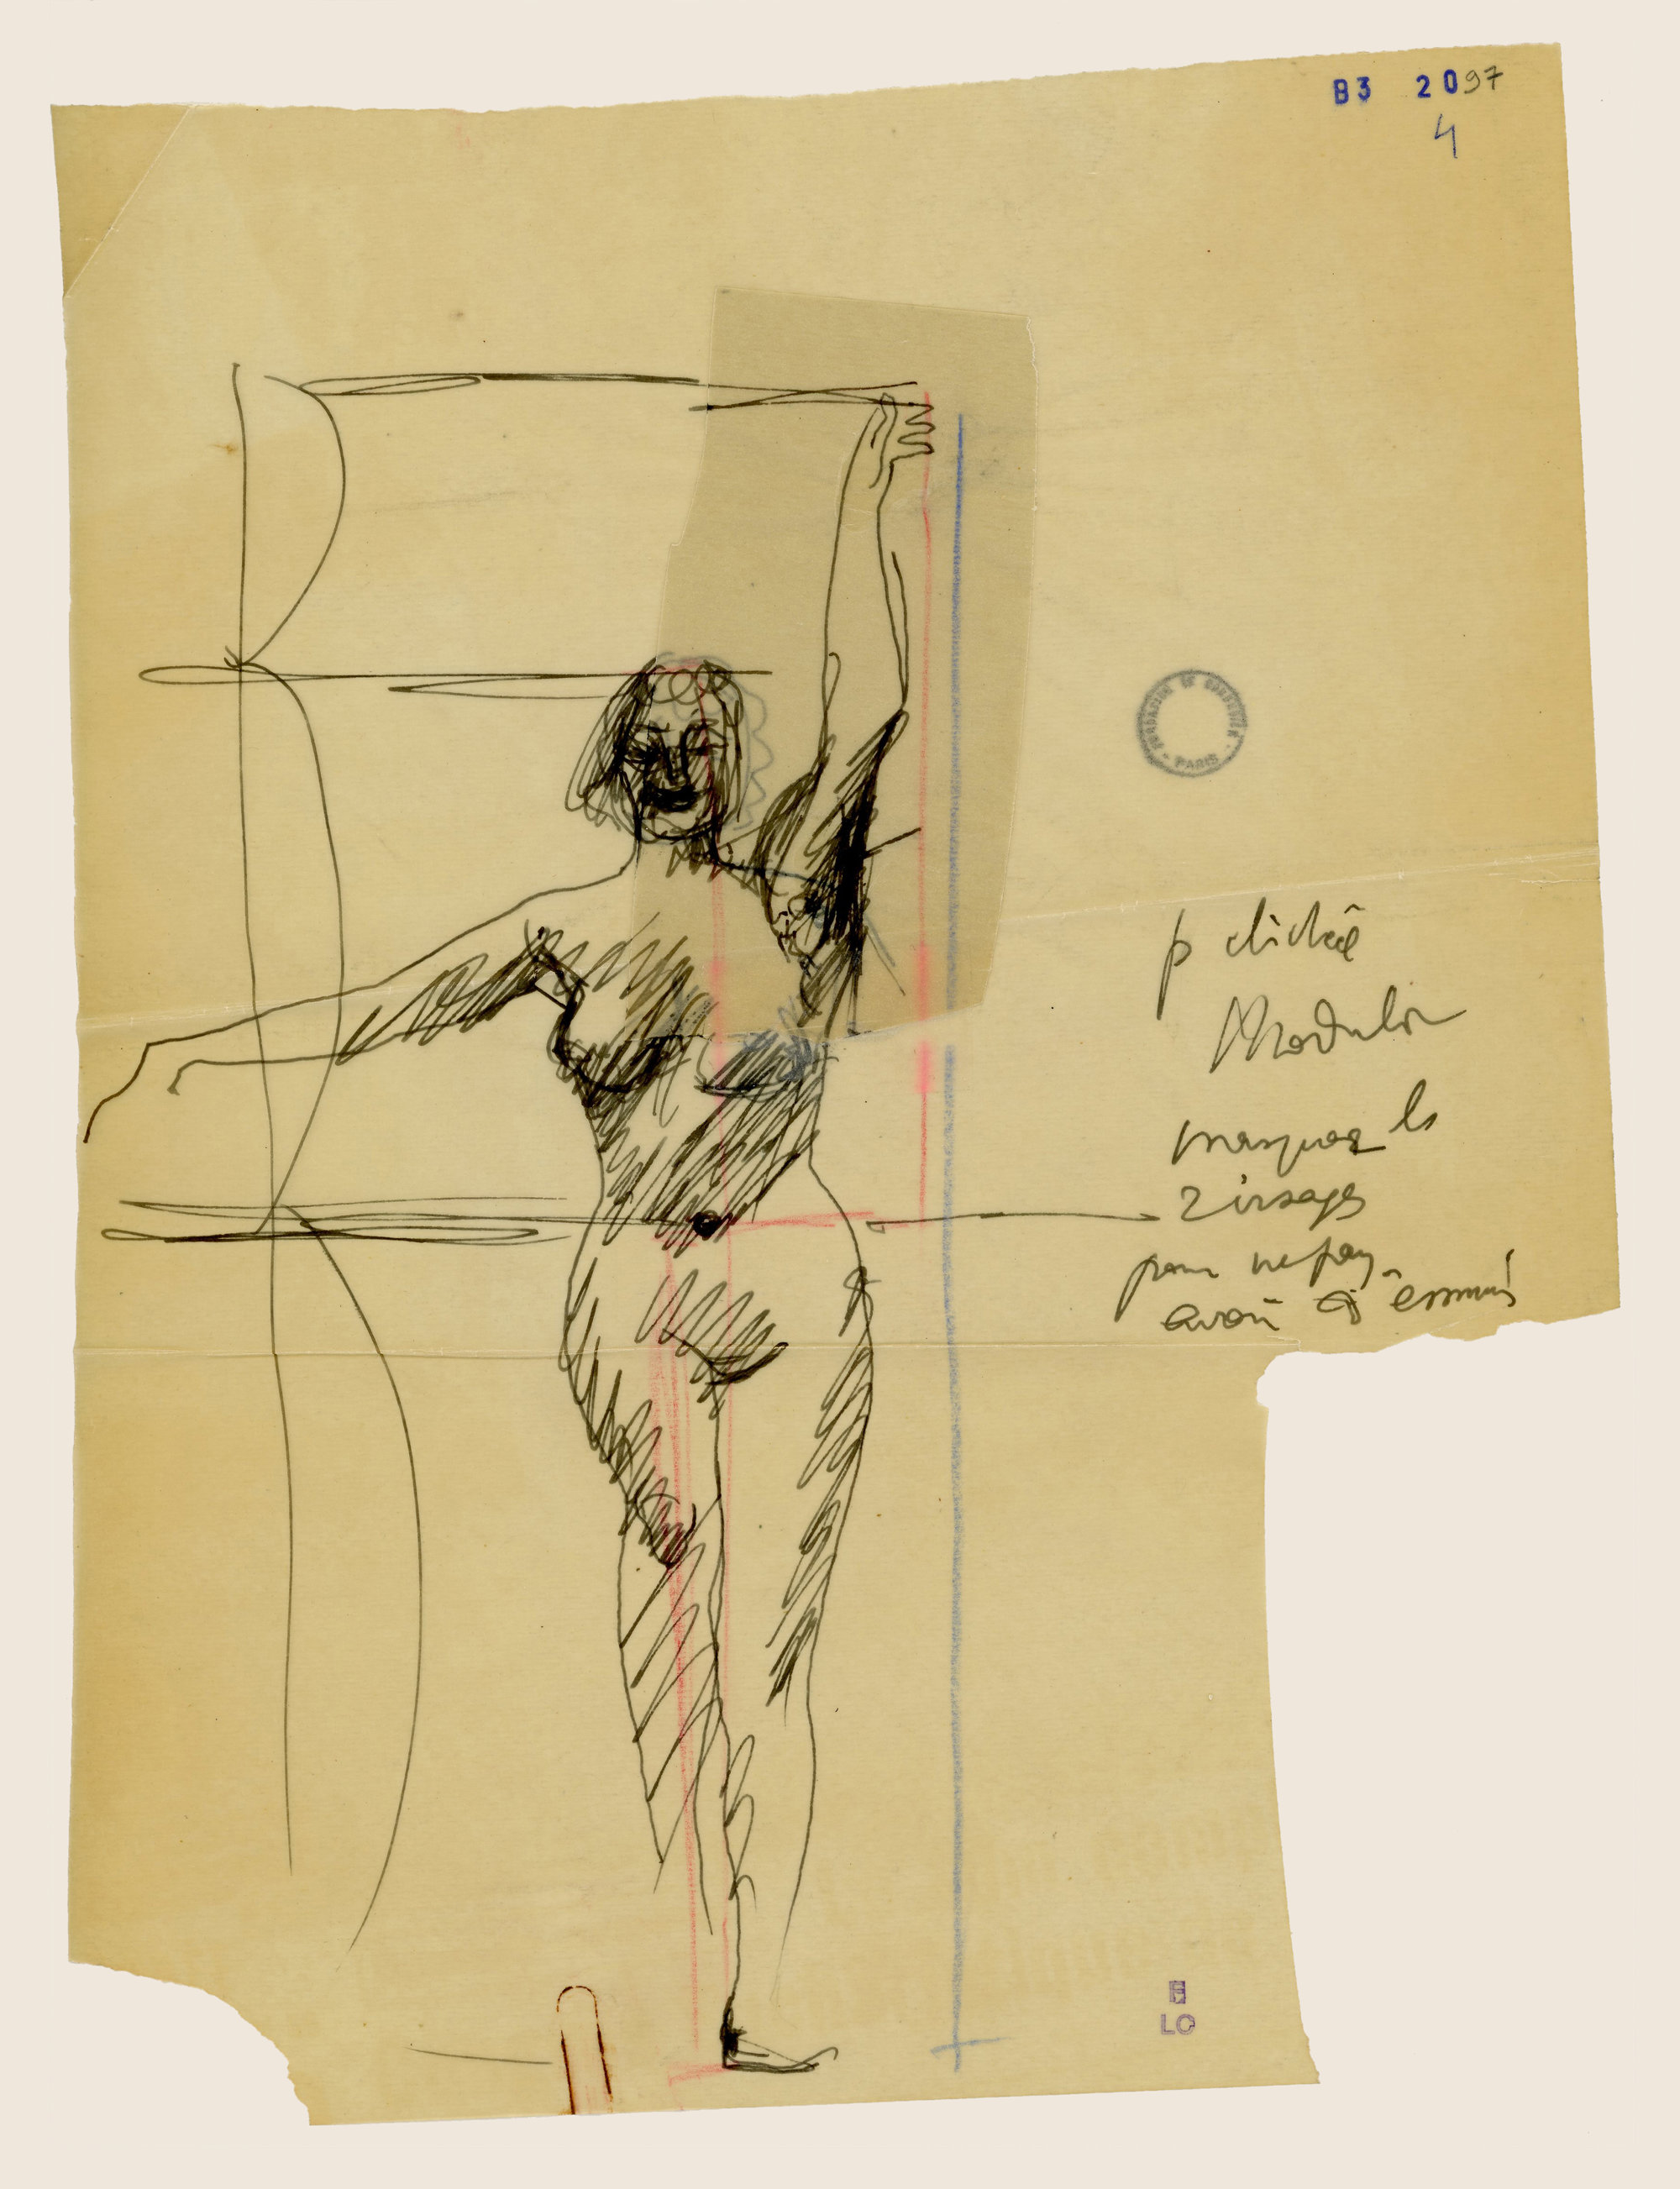 B3 2097
4
FONDATION LE CORBUSIER
PARIS
p cliché
Modulor
masquer ls
pour ne pas
avoir d'ennuis
LC